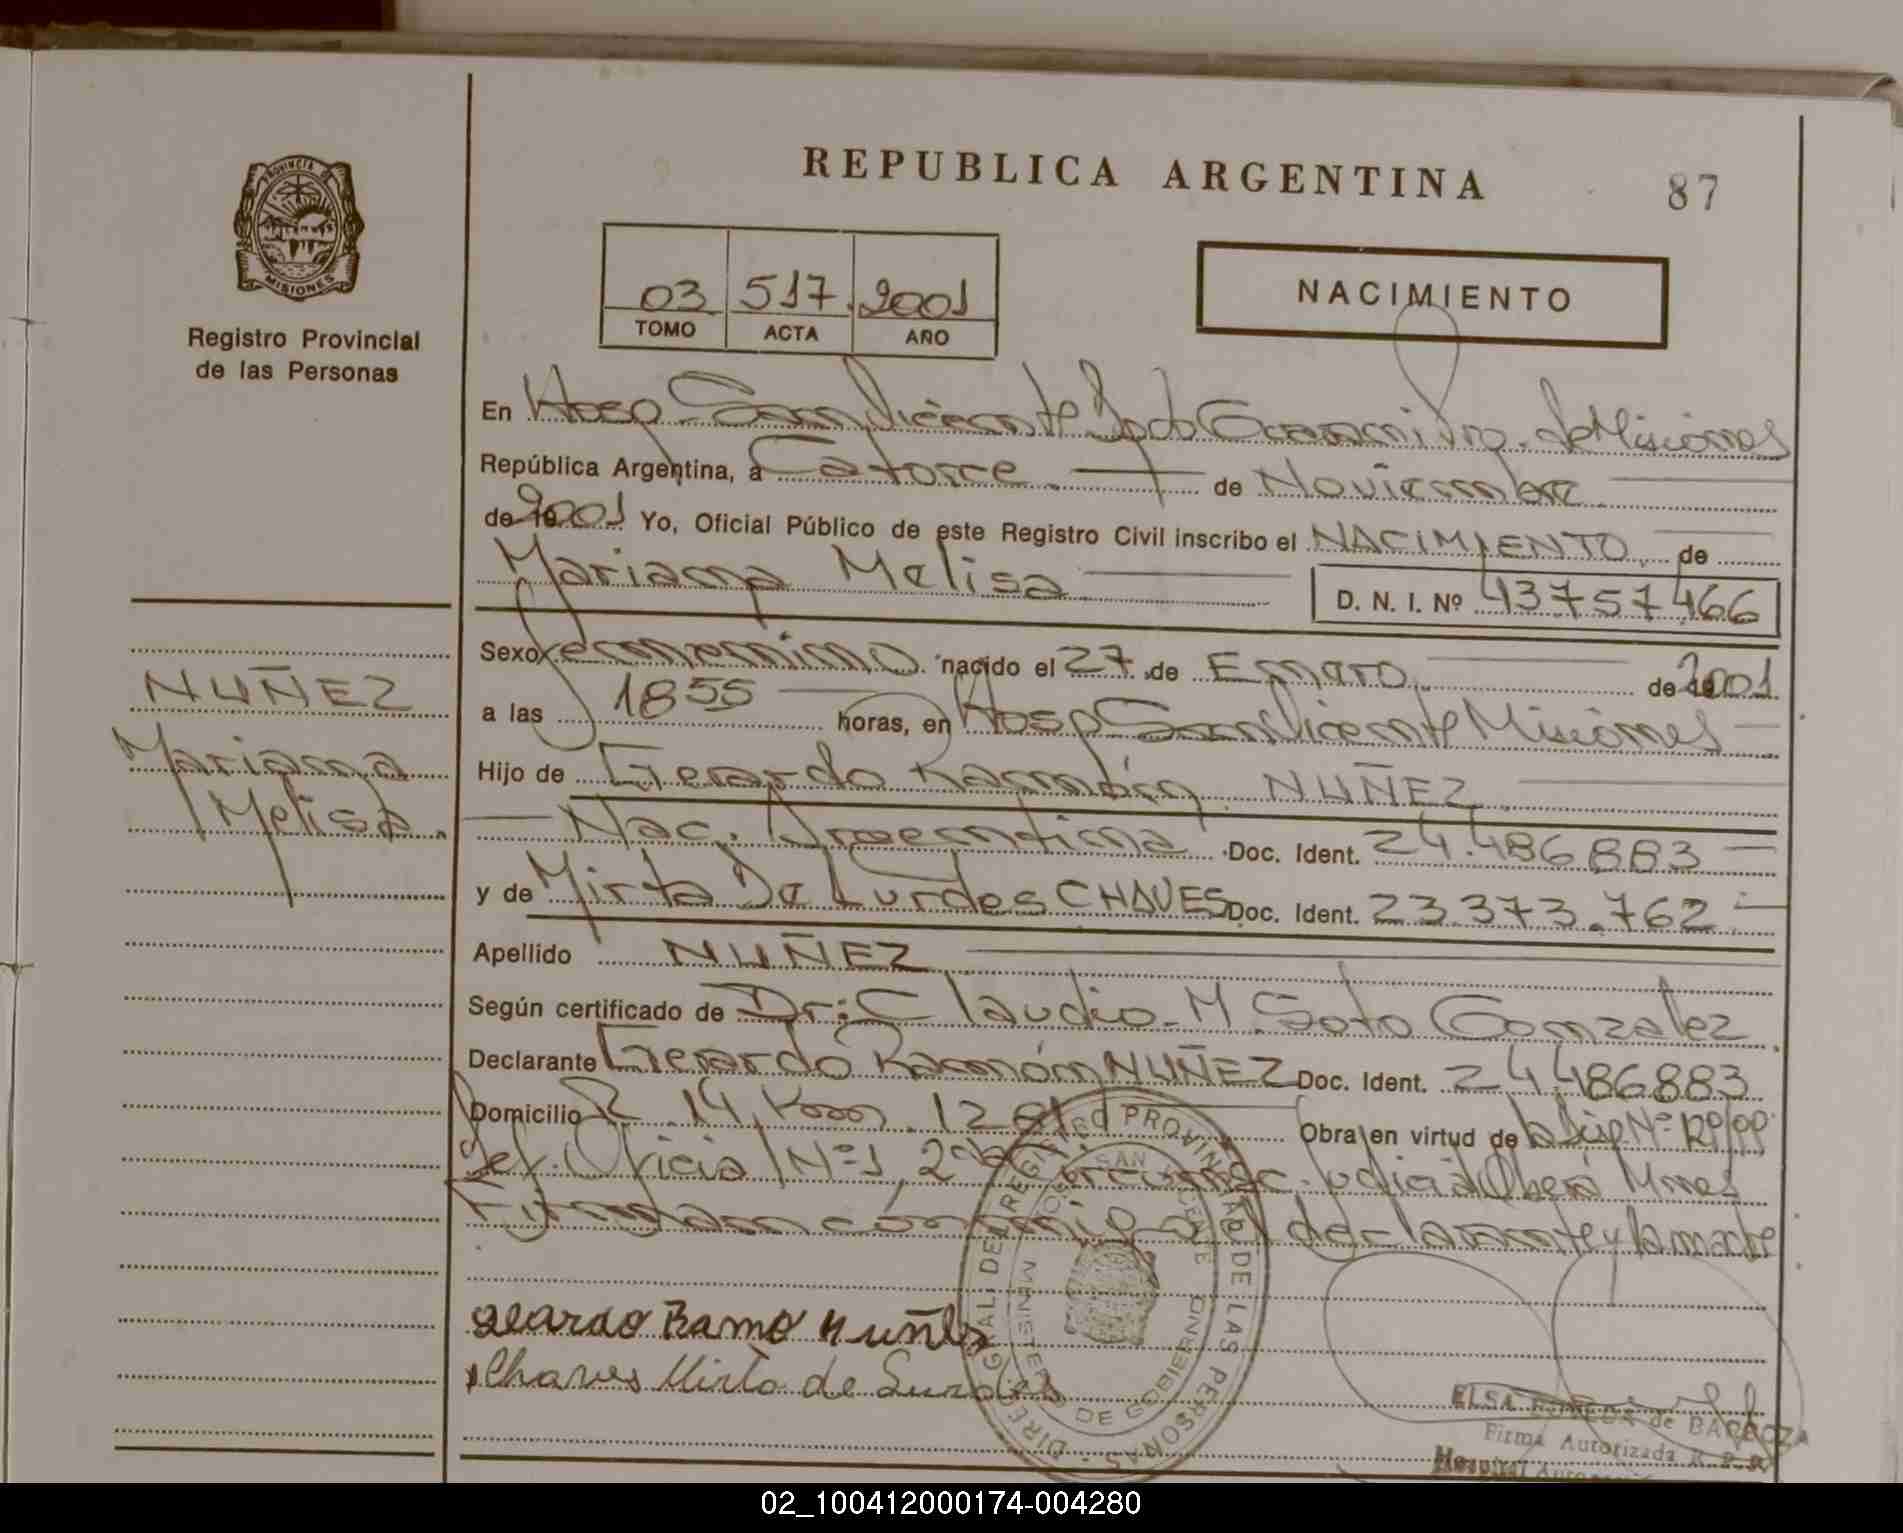 REPUBLICA ARGENTINA
87
PROVINCIA DE
MISIONES
Registro Provincial
de las Personas
03 517 2001
TOMO ACTA AÑO
NACIMIENTO
En Hosp. San Vicente Dpto Guaraní Pro. de Misiones
República Argentina, a Catorce de Noviembre
de 19 2001 Yo, Oficial Público de este Registro Civil inscribo el NACIMIENTO de
Mariana Melisa
D. N. I. Nº 43757466
Sexo Femenino nacido el 27 de Enero de 19 2001
a las 1855 horas, en Hosp San Vicente Misiones
Hijo de Gerardo Ramón NUÑEZ
Nac. Argentina Doc. Ident. 24.486.883
y de Mirta De Lurdes CHAVES Doc. Ident. 23.373.762
Apellido NUÑEZ
Según certificado de Dr: Claudio M. Soto Gonzalez
Declarante Gerardo Ramón NUÑEZ Doc. Ident. 24.486883
Domicilio R. 14 Km. 1281 Obra en virtud de
Def. Oficial Nº 1, 2da Circunsc. Judicial Oberá Mnes
Firman conmigo el declarante y la madre
NUÑEZ
Mariana
Melisa.
Gerardo Ramo Nuñes
Chaves Mirta de Lurdes
DIREC. GRAL. DEL REGISTRO PROVINCIAL DE LAS PERSONAS
SAN VICENTE
MINISTERIO DE GOBIERNO
ELSA de BARBOZA
Firma Autorizada R. P. P.
Hospital
02_100412000174-004280